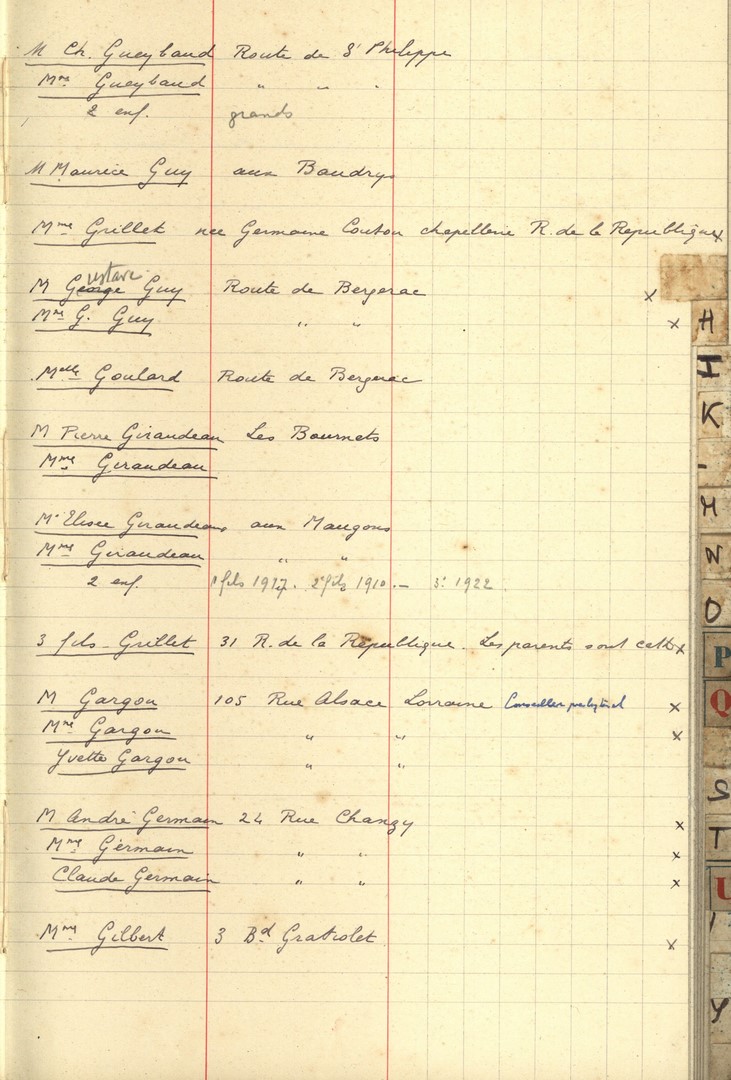 M Ch. Gueybaud Route de St Philippe
Mme Gueybaud " " "
2 enf. grands
M Maurice Guy aux Baudrys
Mme Grillet née Germaine Couton chapellerie R. de la Republique x
ustave
M George Guy Route de Bergerac x
Mme G. Guy " " x
Melle Goulard Route de Bergerac
M Pierre Giraudeau Les Bournets
Mme Giraudeau
Mr Elisée Giraudeau aux Maugons
Mme Giraudeau " "
2 enf. 1 fils 1917. 2e fils 1910. — 3e 1922
3 fils - Grillet 31 R. de la République. Les parents sont cath x
M Gargou 105 Rue Alsace Lorraine Conseiller presbytéral x
Mme Gargou " " x
Yvette Gargou " "
M André Germain 24 Rue Changy x
Mme Germain " " x
Claude Germain " " x
Mme Gilbert 3 Bd Gratiolet x
H
I
K
M
N
O
P
Q
S
T
U
Y